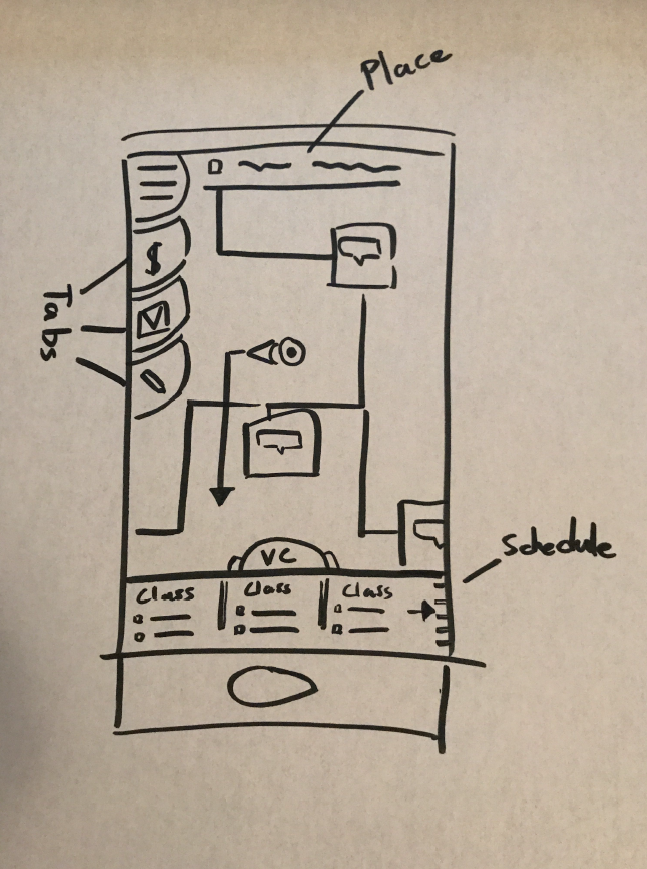 Place
$
Tabs
VC
Schedule
Class
Class
Class